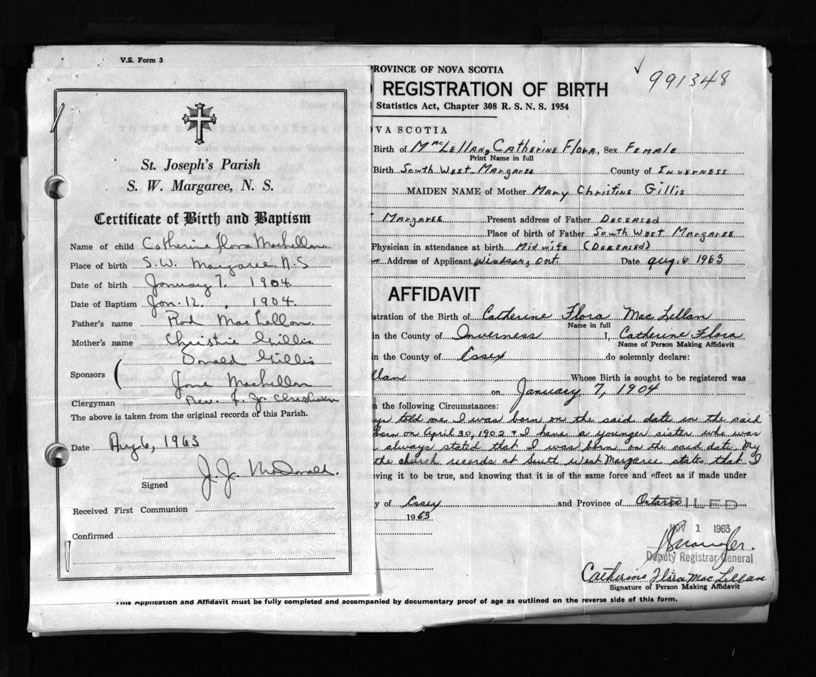 V.S. Form 3
St. Joseph's Parish
S. W. Margaree, N. S.
Certificate of Birth and Baptism
Name of child Catherine Flora MacLellan
Place of birth S.W. Margaree N.S
Date of birth January 7, 1904
Date of Baptism Jan. 12, 1904.
Father's name Rod MacLellan
Mother's name Christie Gillis
Sponsors Donald Gillis
Jane MacLellan
Clergyman Rev. F. J. Chisholm
The above is taken from the original records of this Parish.
Date Aug 6, 1963
J. J. McDonald.
Signed
Received First Communion
Confirmed
PROVINCE OF NOVA SCOTIA
991348
REGISTRATION OF BIRTH
Statistics Act, Chapter 308 R. S. N. S. 1954
OVA SCOTIA
Birth of McLellan, Catherine Flora, Sex Female
Print Name in full
Birth South West Margaree County of Inverness
MAIDEN NAME of Mother Mary Christine Gillis
Margaree Present address of Father Deceased
Place of birth of Father South West Margaree
Physician in attendance at birth Mid wife (Deceased)
Address of Applicant Windsor, Ont. Date Aug. 6 1963
AFFIDAVIT
stration of the Birth of Catherine Flora MacLellan
Name in full
in the County of Inverness I, Catherine Flora
Name of Person Making Affidavit
in the County of Essex do solemnly declare:
llan Whose Birth is sought to be registered was
on January 7, 1904
the following Circumstances:
told me I was born on the said date in the said
born on April 30, 1902 & I have a younger sister who was
always stated that I was born on the said date. My
the church records at South West Margaree states that I
eving it to be true, and knowing that it is of the same force and effect as if made under
y of Essex and Province of Ontario
1963
FILED
1 1963
Deputy Registrar General
Catherine Flora MacLellan
Signature of Person Making Affidavit
This Application and Affidavit must be fully completed and accompanied by documentary proof of age as outlined on the reverse side of this form.